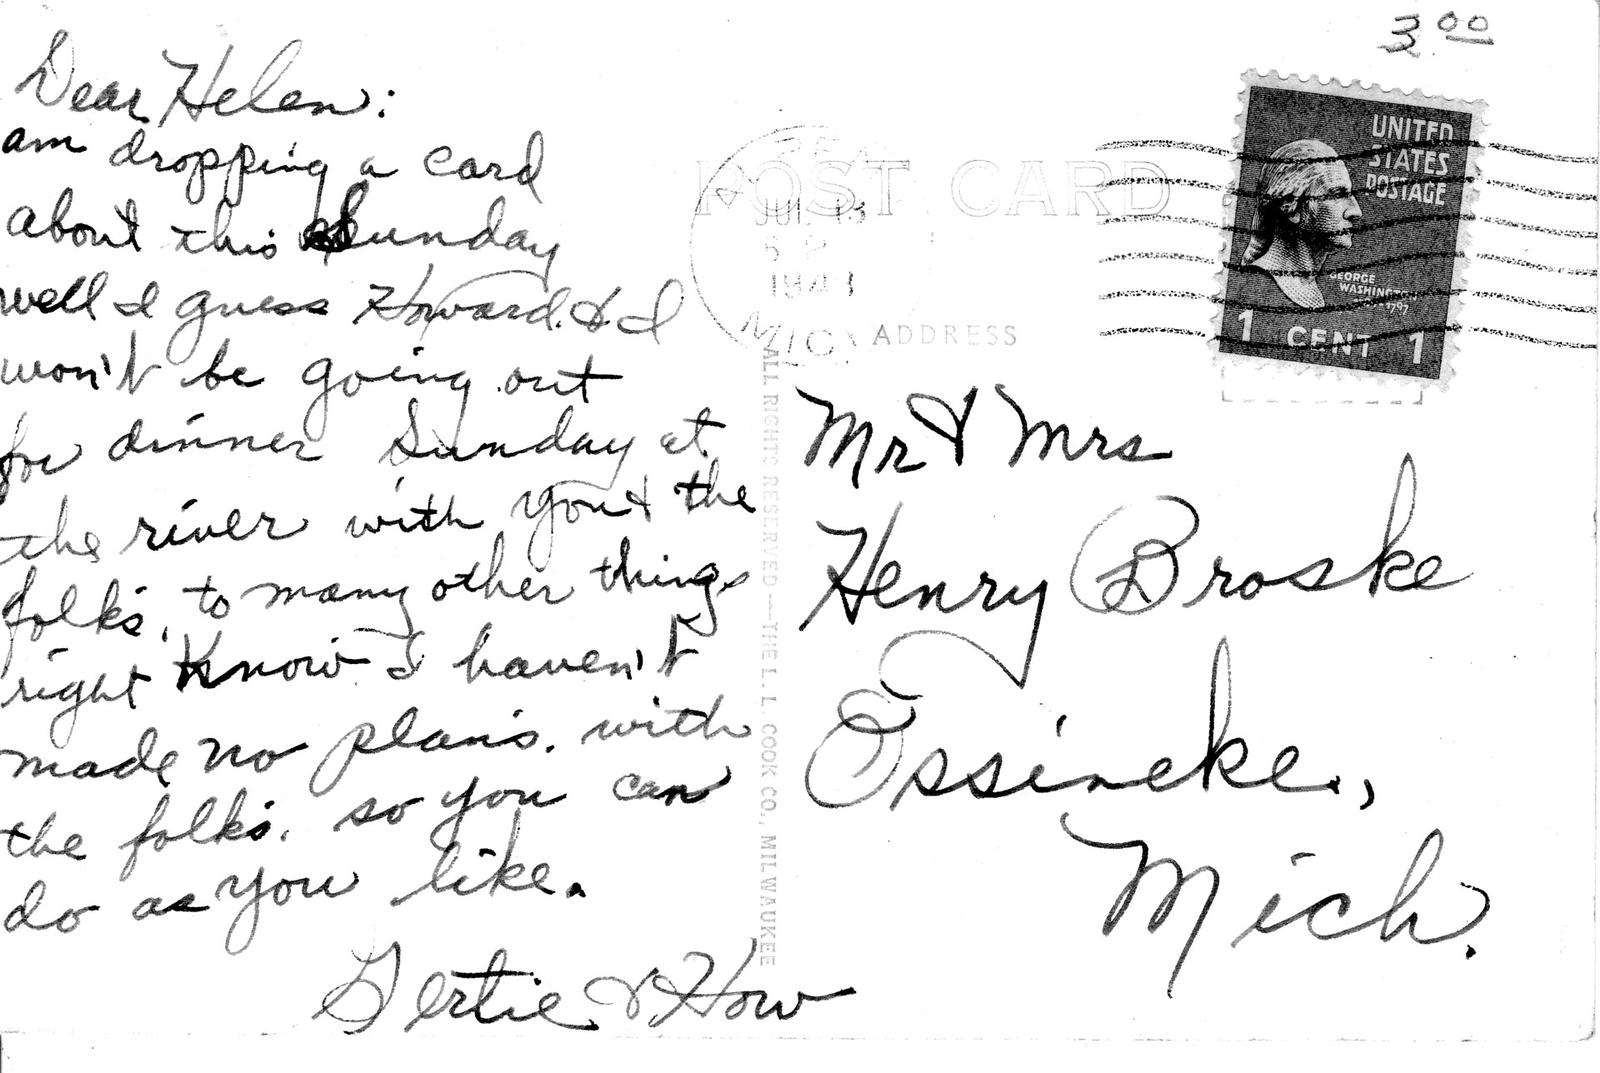 3.00
Dear Helen:
am dropping a card
about this Sunday
well I guess Howard & I
won't be going out
for dinner Sunday at
the river with you & the
folks, to many other things
right know I haven't
made no plans. with
the folks. so you can
do as you like.
Gertie & How
POST CARD
1943
MICH
ADDRESS
UNITED
STATES
POSTAGE
GEORGE
WASHINGTON
1 CENT 1
ALL RIGHTS RESERVED—THE L. L. COOK CO., MILWAUKEE
Mr & Mrs
Henry Broske
Ossineke.,
Mich.